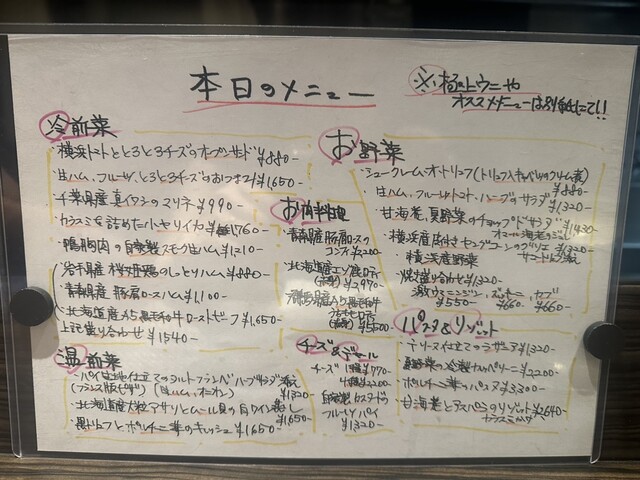 本日のメニュー
※極上ウニや
オススメニューは別紙にて!!
冷前菜
・横浜トマトととろとろチーズのオープンサンド ¥880-
・生ハム、フルーツ、とろとろチーズのおつまみ ¥1,650-
・千葉県産真イワシのマリネ ¥990-
・カラスミを詰めた小ヤリイカ ¥1,760-
・鴨胸肉の自家製スモーク生ハム ¥1,210-
・岩手県産 桜姫鶏のしっとりハム ¥880-
・青森県産 豚肩ロースハム ¥1,100-
・北海道産 黒毛和牛ローストビーフ ¥1,650-
上記盛り合わせ ¥1540-
温前菜
・パイ生地仕立てのタルトフランベ ハーブサラダ添え
¥1320-
・北海道産大粒アサリとムール貝の白ワイン蒸し
¥1,650-
・黒トリュフとポルチーニ茸のキッシュ ¥1,650-
お肉料理
青森県産 豚肩ロースの
コンフィ ¥2,200-
・北海道産エゾ鹿
¥2,970-
¥5,500
チーズ&デザート
チーズ 1種 ¥770-
¥2200-
自家製カスタードの
フルーツパイ
¥1320-
お野菜
・シュークレーム・オ・トリュフ(トリュフ入りキャベツのクリーム煮)
¥880-
・生ハム、フルーツトマト、ハーブのサラダ
¥1,320-
・甘海老、夏野菜のチョップドサラダ
オマール海老のジュレ ¥1430-
・横浜産 ヤングコーンのグリエ ¥1320-
・横浜産野菜
焼き盛り合わせ ¥1320-
¥550- ¥660- ¥660-
パスタ&リゾット
¥1320-
・夏野菜の冷製カッペリーニ ¥2200-
・ポルチーニ茸のパスタ ¥3,300-
・甘海老とアスパラのリゾット ¥2640-